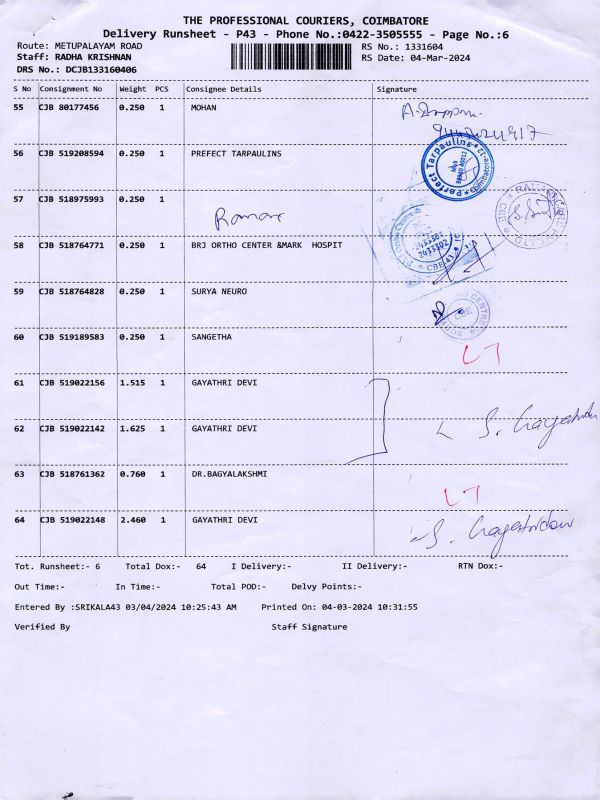 THE PROFESSIONAL COURIERS, COIMBATORE
Delivery Runsheet - P43 - Phone No.:0422-3505555 - Page No.:6
Route: METUPALAYAM ROAD RS No.: 1331604
Staff: RADHA KRISHNAN RS Date: 04-Mar-2024
DRS No.: DCJB133160406
S No Consignment No Weight PCS Consignee Details Signature
55 CJB 80177456 0.250 1 MOHAN
56 CJB 519208594 0.250 1 PREFECT TARPAULINS
Perfect Tarpaulins
57 CJB 518975993 0.250 1
58 CJB 518764771 0.250 1 BRJ ORTHO CENTER &MARK HOSPIT
2433302
CBE
59 CJB 518764828 0.250 1 SURYA NEURO
CBE
60 CJB 519189583 0.250 1 SANGETHA
61 CJB 519022156 1.515 1 GAYATHRI DEVI
62 CJB 519022142 1.625 1 GAYATHRI DEVI
63 CJB 518761362 0.760 1 DR.BAGYALAKSHMI
64 CJB 519022148 2.460 1 GAYATHRI DEVI
Tot. Runsheet:- 6 Total Dox:- 64 I Delivery:- II Delivery:- RTN Dox:-
Out Time:- In Time:- Total POD:- Delvy Points:-
Entered By :SRIKALA43 03/04/2024 10:25:43 AM Printed On: 04-03-2024 10:31:55
Verified By Staff Signature